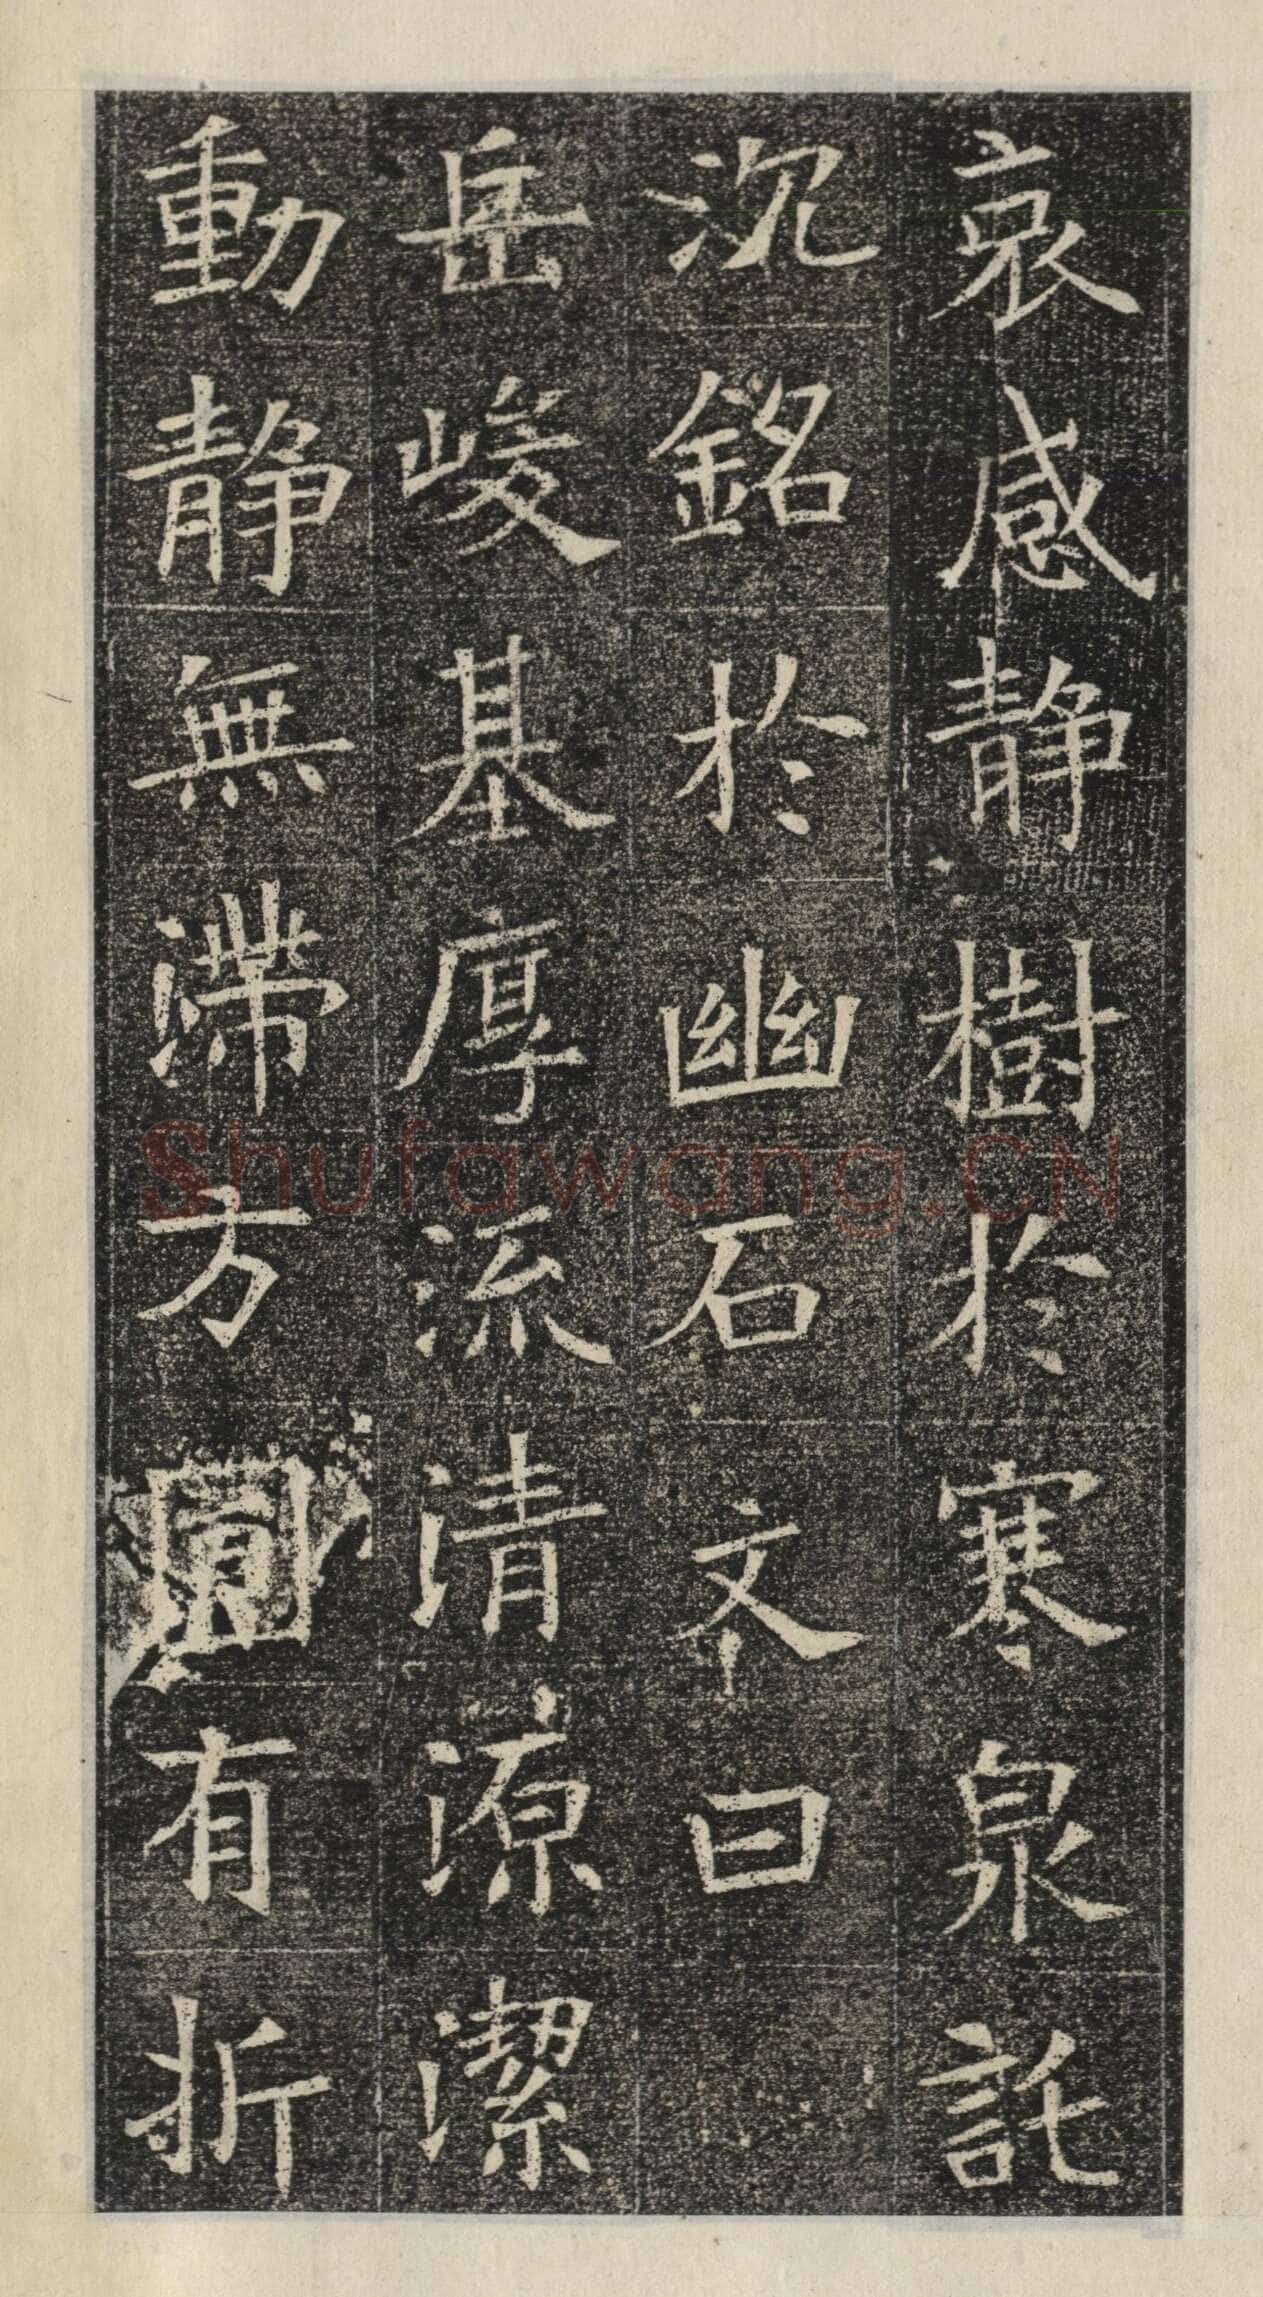 哀感静樹於寒泉託
沉銘於幽石文曰
岳峻基厚流清源潔
動静無滯方圓有折
Shufawang.CN